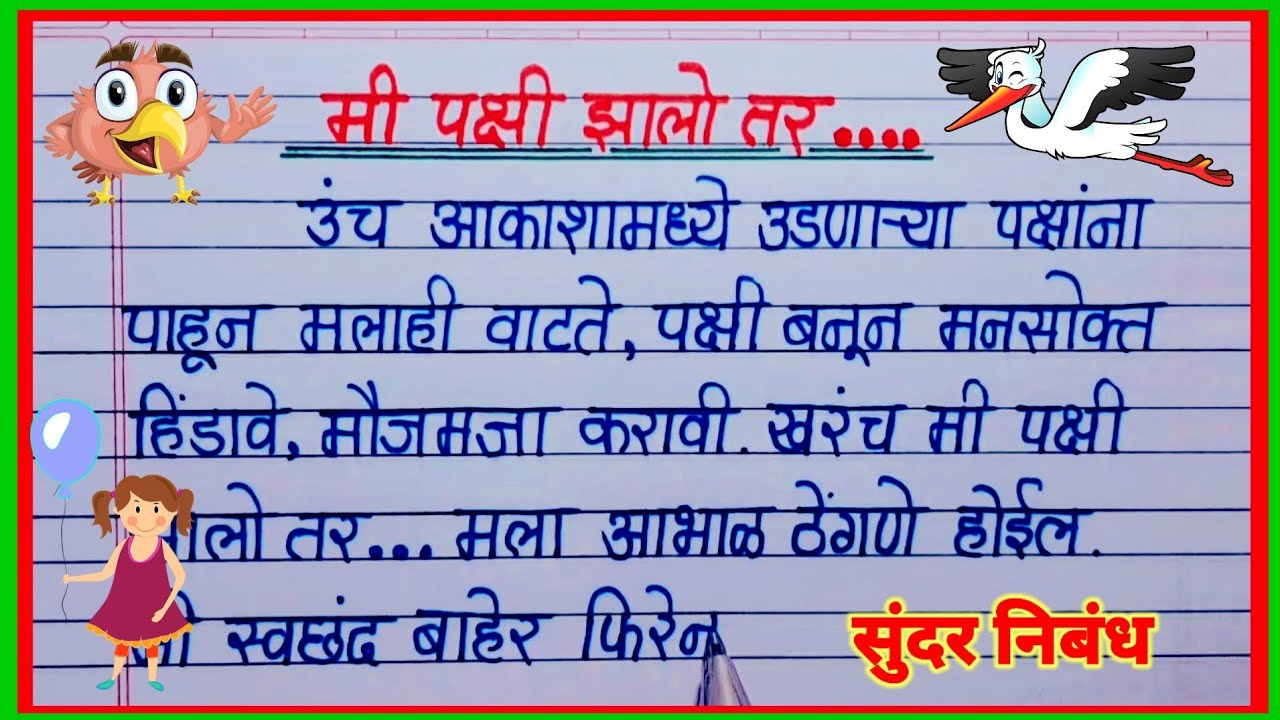 मी पक्षी झालो तर....
उंच आकाशामध्ये उडणाऱ्या पक्षांना
पाहून मलाही वाटते, पक्षी बनून मनसोक्त
हिंडावे, मौजमजा करावी. खरंच मी पक्षी
तर... मला आभाळ ठेंगणे होईल.
स्वछंद बाहेर फिरेन
सुंदर निबंध